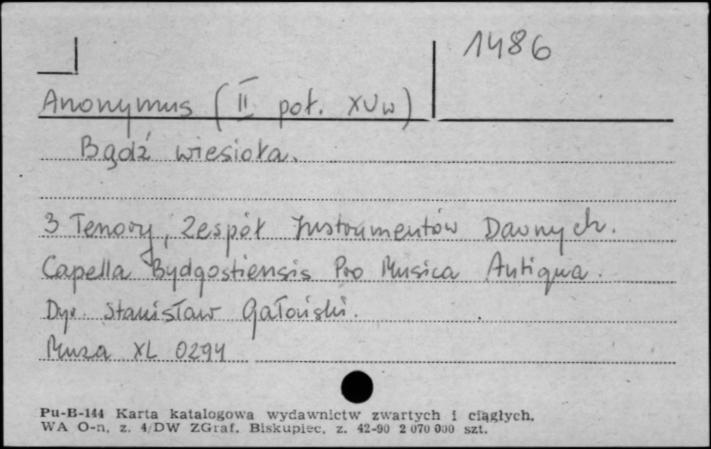 1486
Anonymus (II poł. XV w)
Bądź wiesioła.
3 Tenory, Zespół Instrumentów Dawnych.
Capella Bydgostiensis Pro Musica Antiqua.
Dyr. Stanisław Gałoński.
Muza XL 0294
Pu-B-144 Karta katalogowa wydawnictw zwartych i ciągłych.
WA O-n, z. 4/DW ZGraf. Biskupiec, z. 42-90 2 070 000 szt.